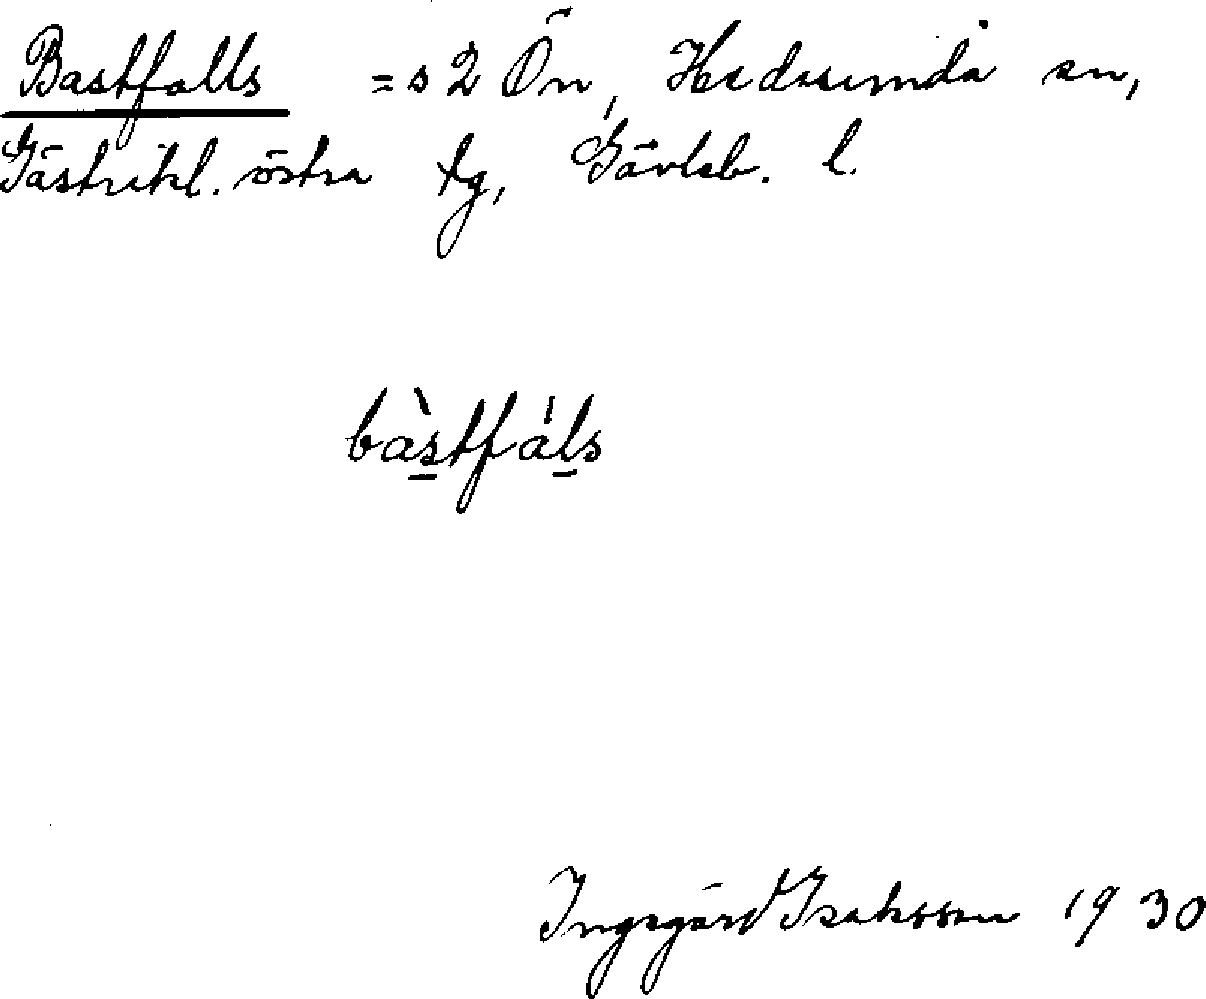 Bastfalls = s 2 Ön, Hedesunda sn,
Gästrikl. östra tg, Gävleb. l.
bàstfáls
Ingegärd Isaksson 1930